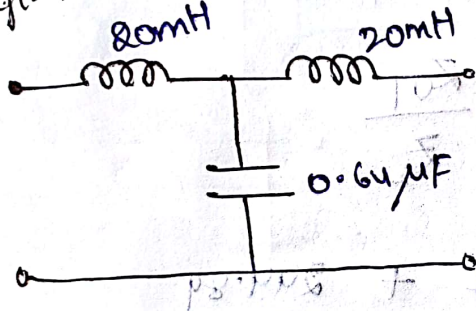 20mH
20mH
0.64 µF